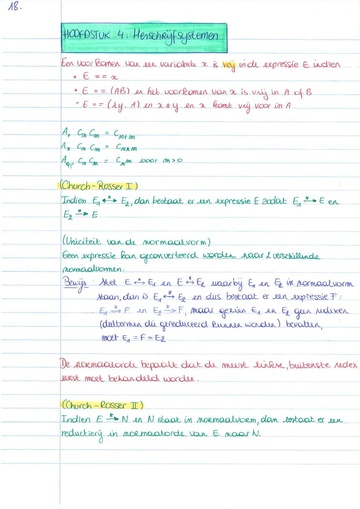 18.
HOOFDSTUK 4. Herschrijfsystemen
Een voorkomen van een variabele x is vrij in de expressie E indien
• E == x
• E == (AB) en het voorkomen van x is vrij in A of B
• E == (λy. A) en x ≠ y en x komt vrij voor in A
A₊ Cₙ Cₘ = Cₙ₊ₘ
Aₓ Cₙ Cₘ = Cₙₓₘ
Cₙ Cₘ = voor m>0
(Church-Rosser I)
Indien E₁ ↔* E₂, dan bestaat er een expressie E zodat E₁ →* E en
E₂ →* E
(Uniciteit van de normaalvorm)
Geen expressie kan geconverteerd worden naar 2 verschillende
normaalvormen.
Bewijs: Stel E ↔* E₁ en E ↔* E₂ waarbij E₁ en E₂ in normaalvorm
staan, dan is E₁ ↔* E₂ en dus bestaat er een expressie F:
E₁ →* F en E₂ →* F, maar gezien E₁ en E₂ geen redexen
(deeltermen die gereduceerd kunnen worden) bevatten,
moet E₁ = F = E₂
De normaalorde bepaalt dat de meest linkse, buitenste redex
eerst moet behandeld worden.
(Church-Rosser II)
Indien E →* N en N staat in normaalvorm, dan bestaat er een
reductierij in normaalorde van E naar N.